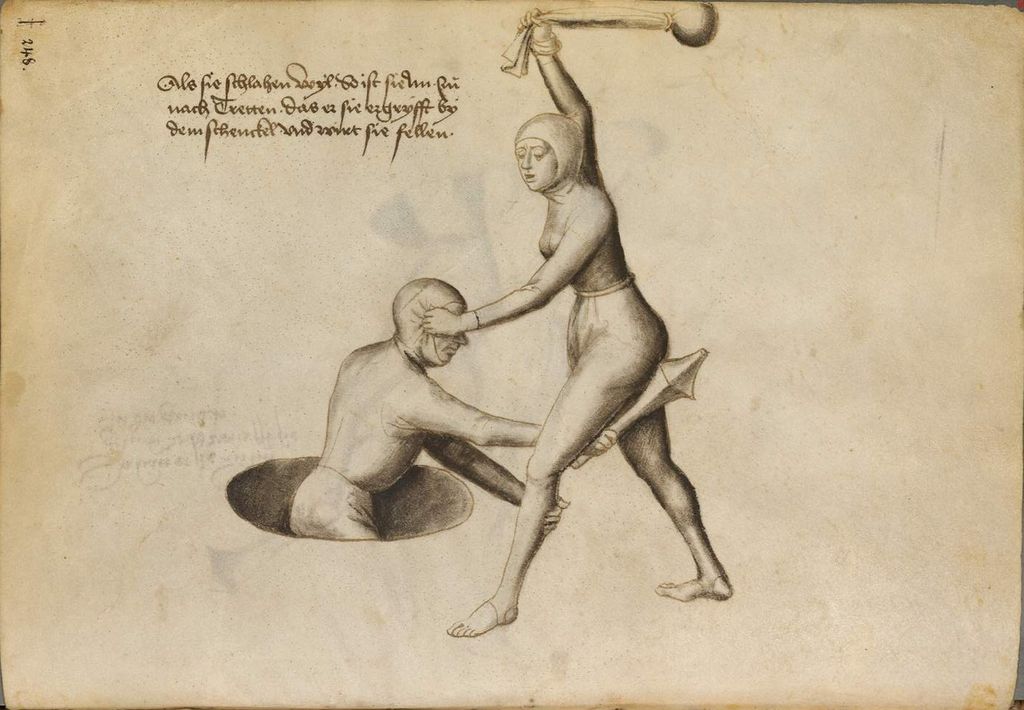 248.
Als sie schlahen wyl. So ist sie Im zü
nach Tretten. das er sie ergryfft by
dem schenckel vnd wirt sie fellen.